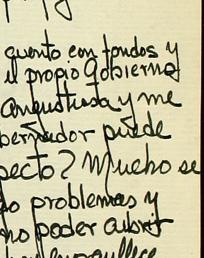 quento con fondos y
el propio Gobierno
angustiada y me
bernador puede
pecto? Mucho se
so problemas y
no poder cubrir